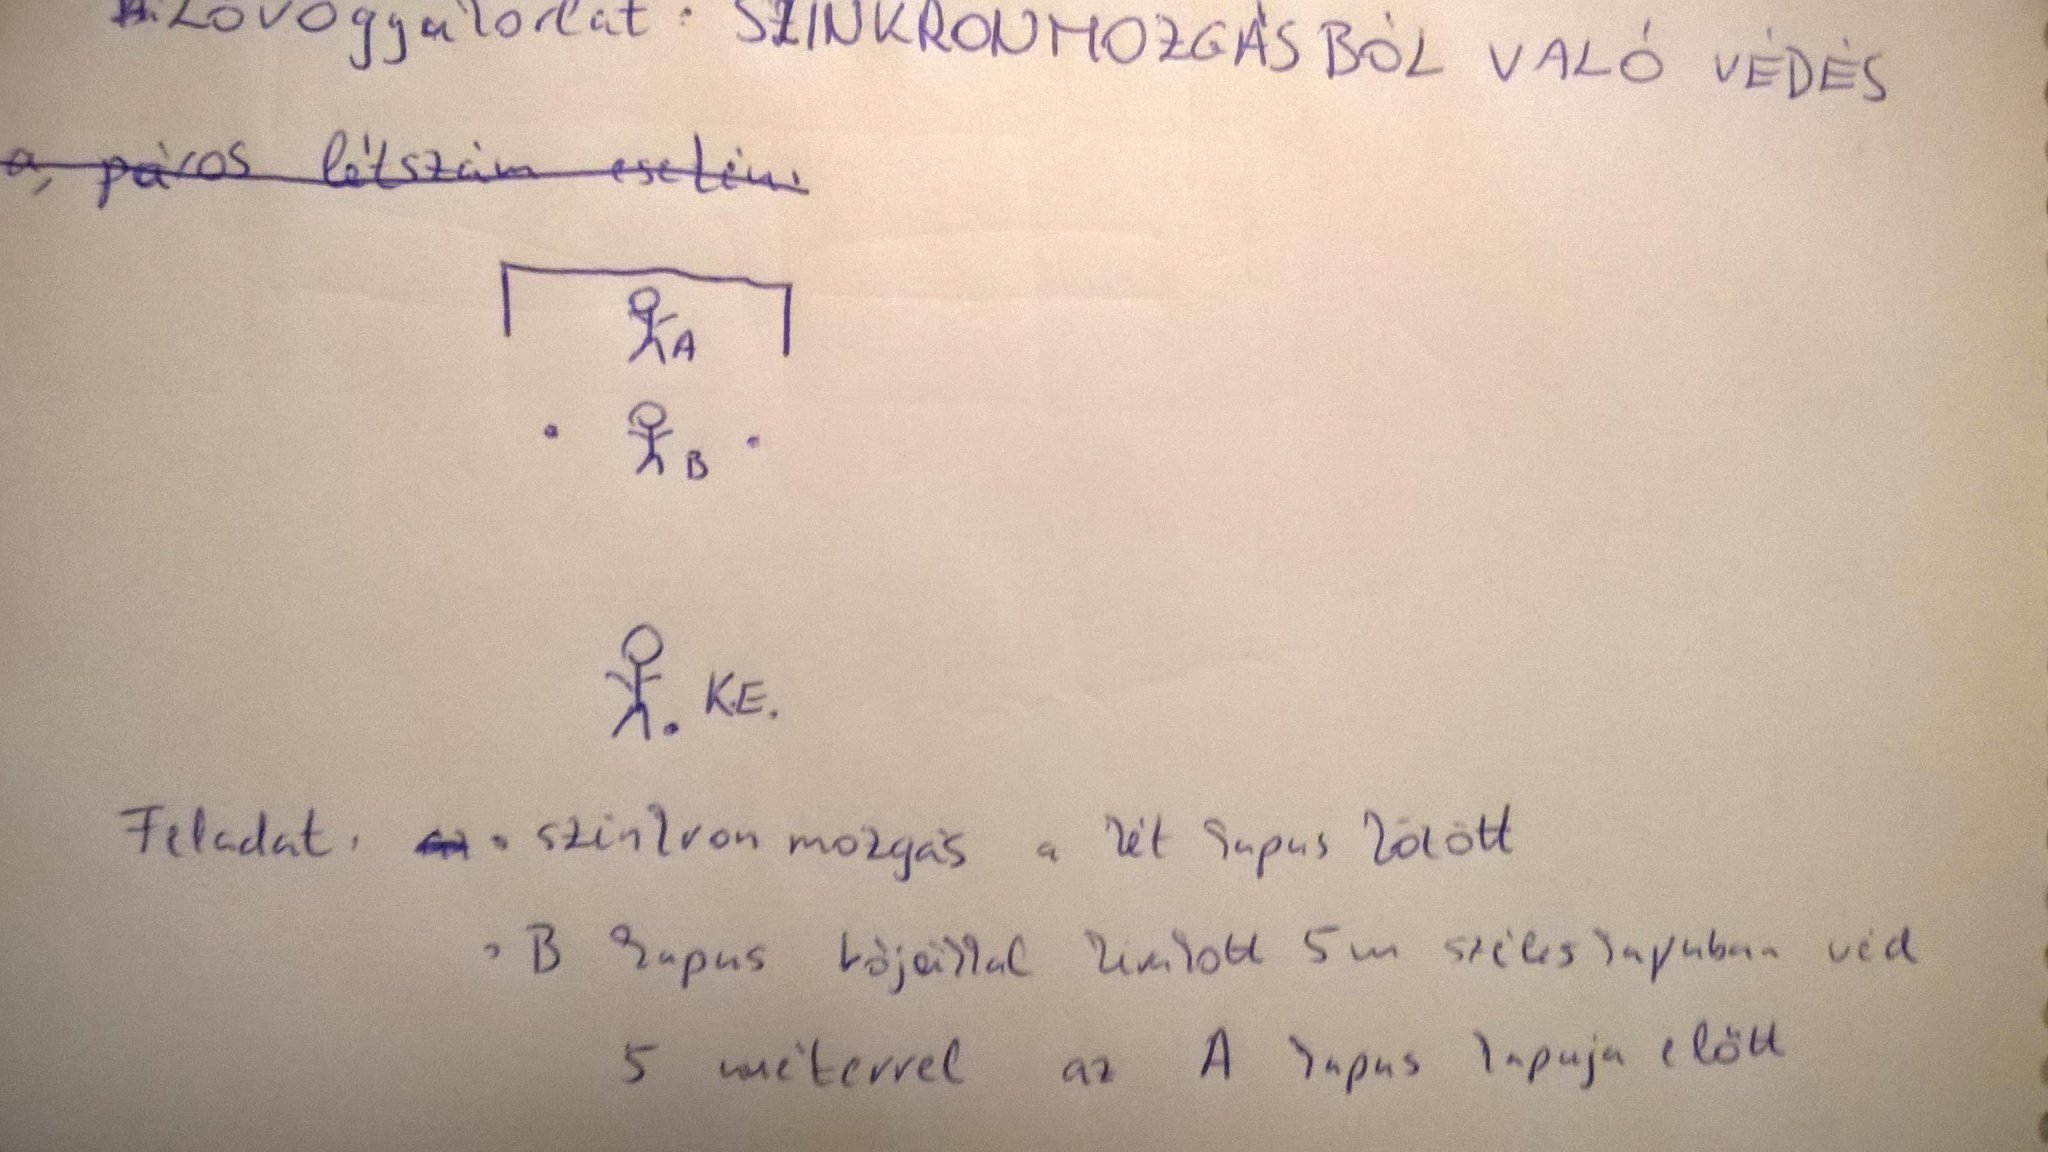 Lövőgyakorlat: SZINKRONMOZGÁSBÓL VALÓ VÉDÉS
a, páros létszám esetén:
A
B
K.E.
Feladat: • szinkronmozgás a két kapus között
• B kapus bójákkal kirakott 5m széles kapuban véd
5 méterrel az A kapus kapuja előtt